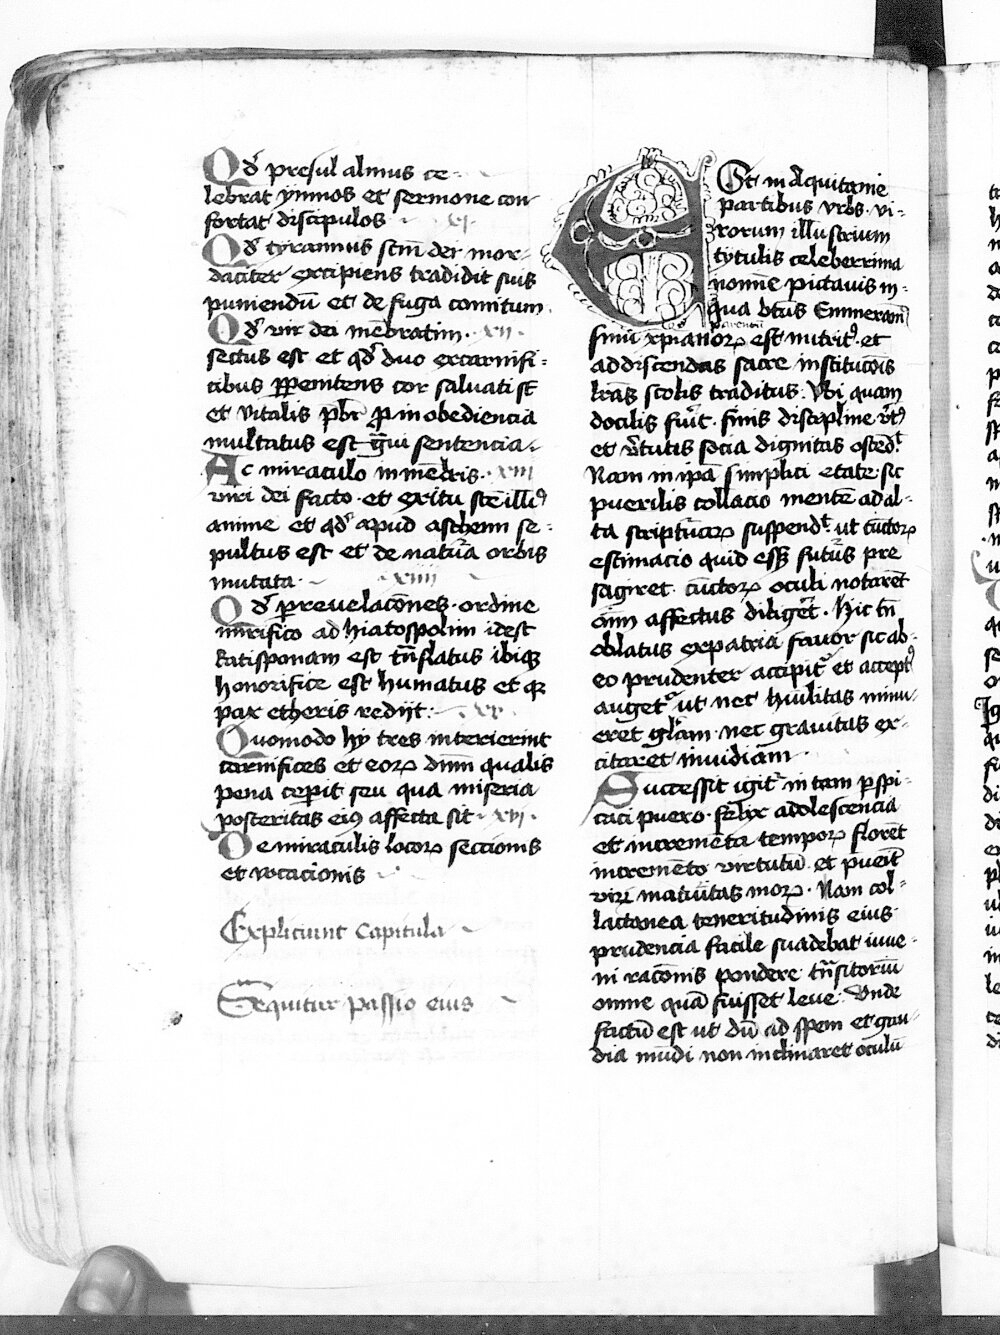 Qd' presul almus ce-
lebrat ymnos et sermone con
fortat discipulos · xi ·
Qd' tyrannus scm̄ dei mor-
daciter excipiens tradidit suis
puniendū et de fuga comitum
Qd' vir dei mēbratim · xii ·
sectus est et qd' duo excarnifi-
cibus ꝑpenitens cor saluati sc̄
et vitalis pbr̄ ꝓ in obediencia
multatus est g̅ui sentencia ·
Ac miraculo in mēbris · xiii
viri dei facto · et exitu sc̄e illiꝰ
anime et qd' apud aschem se-
pultus est et de natur̄a orbis
mutata · xiiii
Qd' ꝑ reuelacōnes · ordine
mirifico ad hiatospolim idest
Ratisponam est tn̄slatus ibiqꝫ
honorifice est humatus et qꝛ
pax etheris redijt · xv ·
Quomodo hy tres interierint
carnifices et eoꝝ dnm̄ qualis
pena cepit seu qua miseria
posteritas eiꝰ affecta sit · xvi ·
De miraculis locoꝝ seccionis
et vocacionis
Expliciunt Capitula
Sequitur passio eius
Est in Aquitanie
partibus vrbs vi-
rorum illustrium
tytulis celeberrima
nomīe pictauis in
qua btūs Emmeram̄
parentū
finiū xp̄ianoꝝ est nutritꝰ et
ad discendas sacre institucōis
lrās scolis traditus · Vbi quam
docilis fuit̄ · finis discipline
et v̄tutis socia dignitas
Nam in ipā simplici etate sic
puerilis collacio mentē ad al-
ta scriptur̄aꝝ suspendt̄ ut cūctoꝝ
estimacio quid ess̄ futūs pre
sagiret cūctoꝝ oculi notarēt
om̄i affectus diligēt · Hic tn̄
oblatus ex patria fauor sic ab-
eo prudenter accipitᷣ et acceptꝰ
augetᷣ ut nec hūilitas minu
eret glām nec grauitas ex-
citaret inuidiam
Successit igitᷣ in tam ꝑspi-
caci puero · felix adolescencia
et incrementa tempoꝝ floret̄
incremēto virtutū et pueit̄
viri maturitas moꝝ · Nam col-
lactanea teneritudinis eius
prudencia facile suadebat iuue-
ni racōnis pondere tn̄sitoriū
omne quā fuisset leue · Vnde
factū est ut dū ad spem et gau-
dia mūdi non inclinaret oculū